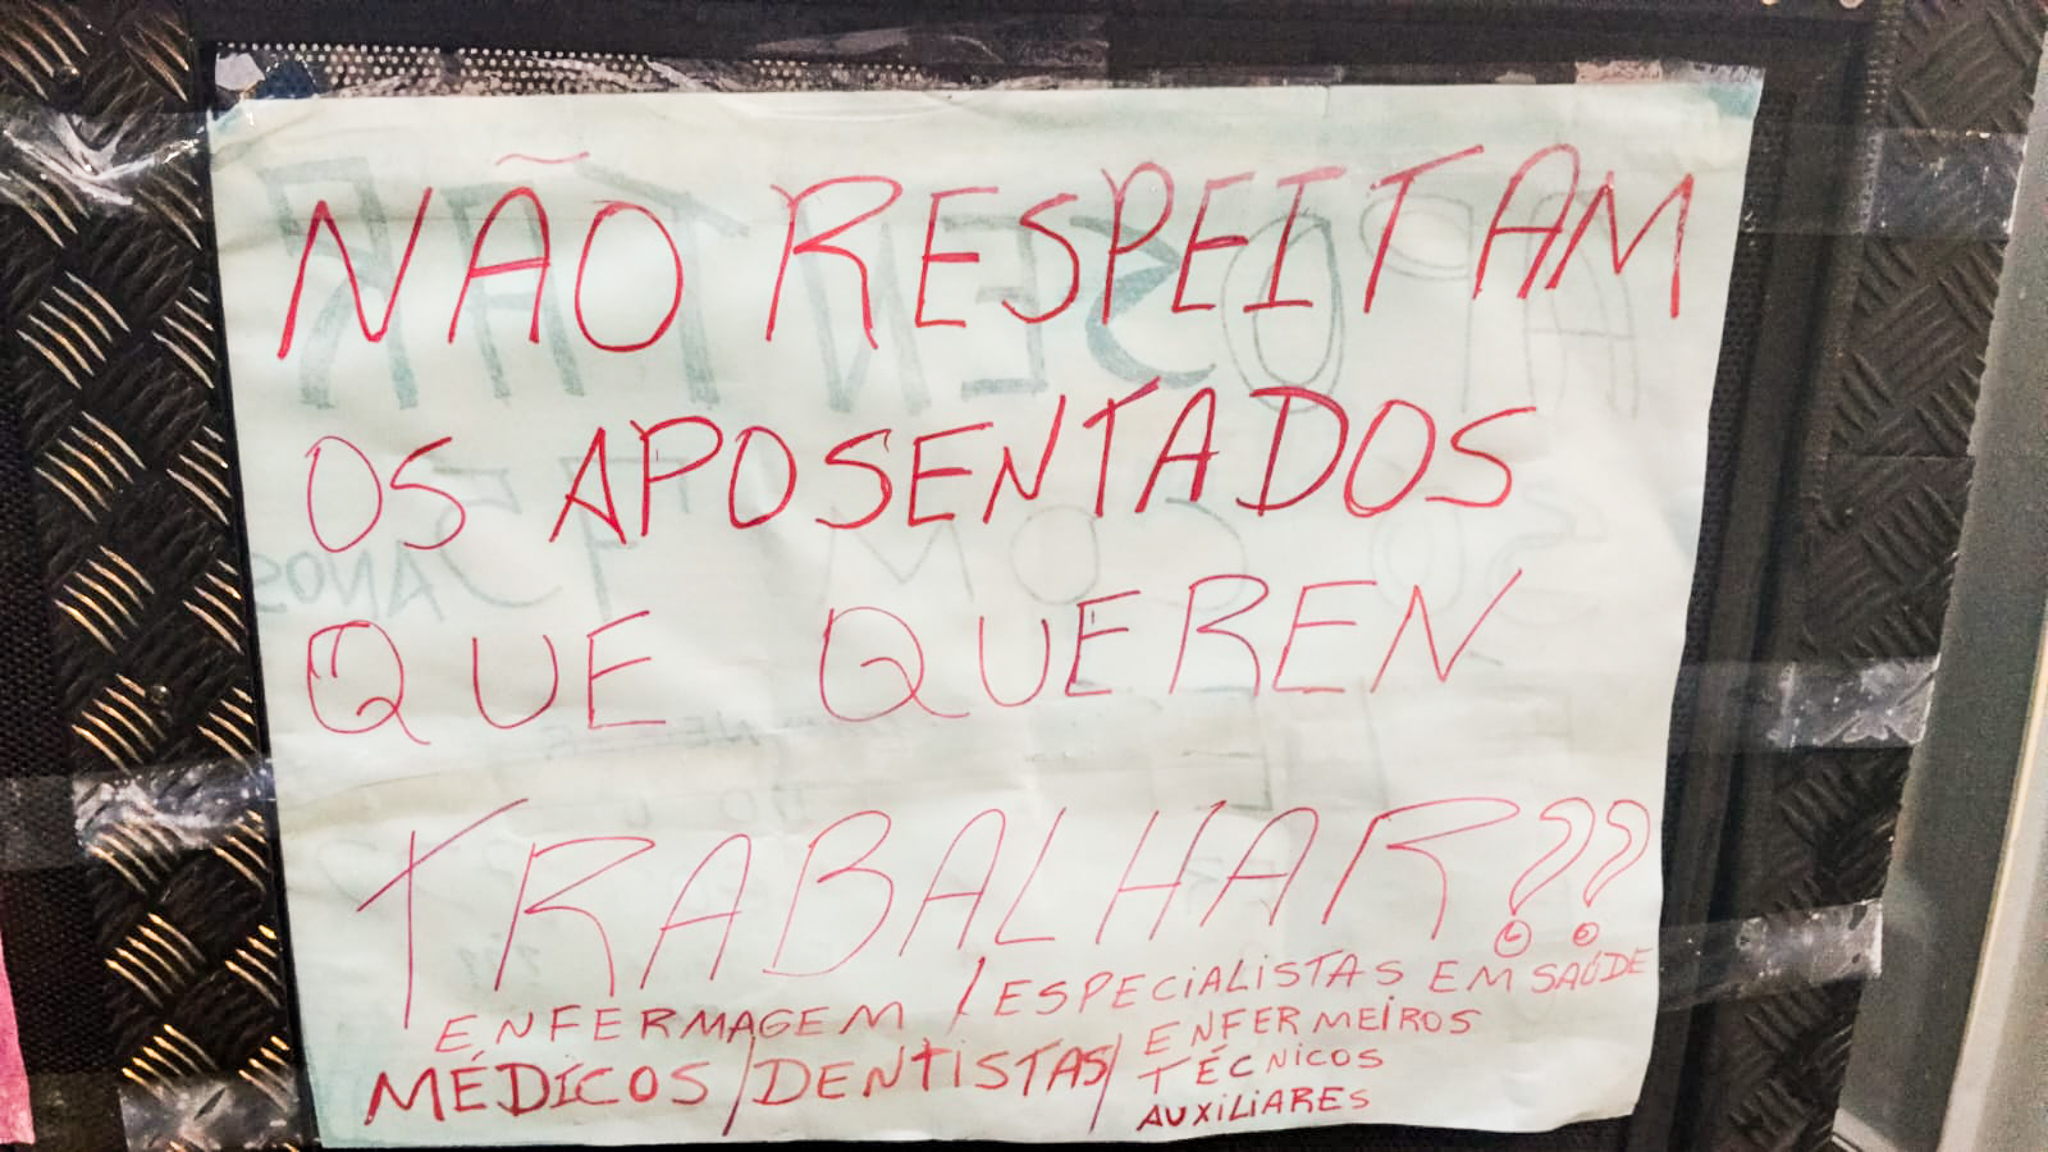 NÃO RESPEITAM
OS APOSENTADOS
QUE QUEREN
TRABALHAR??
ENFERMAGEM / ESPECIALISTAS EM SAÚDE
MÉDICOS / DENTISTAS / ENFERMEIROS
TÉCNICOS
AUXILIARES
APOSENTAR
SÓ COM 75 ANOS